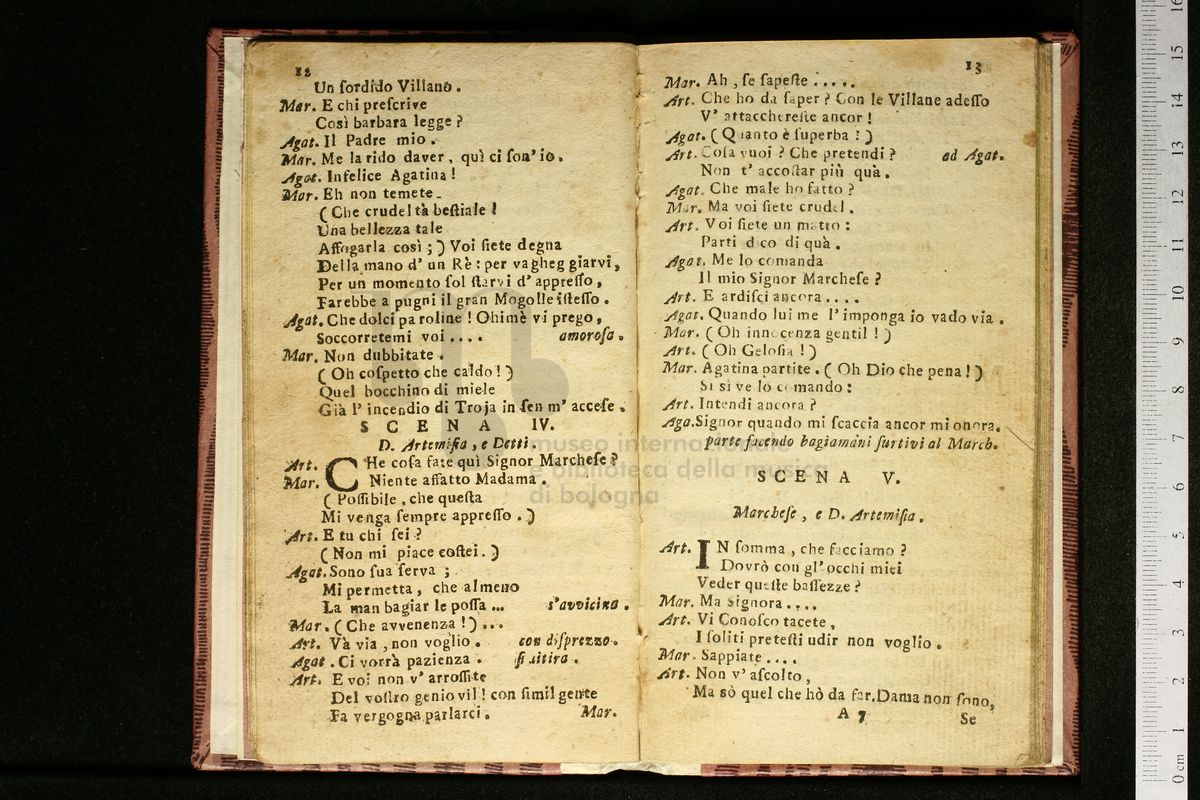 12
Un sordido Villano.
Mar. E chi prescrive
Così barbara legge?
Agat. Il Padre mio.
Mar. Me la rido daver, quì ci son' io.
Agat. Infelice Agatina!
Mar. Eh non temete.
(Che crudeltà bestiale!
Una bellezza tale
Affogarla così;) Voi siete degna
Della mano d' un Rè: per vagheggiarvi,
Per un momento sol starvi d' appresso,
Farebbe a pugni il gran Mogolle istesso.
Agat. Che dolci paroline! Ohimè vi prego,
Soccorretemi voi.... amorosa.
Mar. Non dubbitate.
(Oh cospetto che caldo!)
Quel bocchino di miele
Già l' incendio di Troja in sen m' accese.
SCENA IV.
D. Artemisia, e Detti.
Art. CHe cosa fate quì Signor Marchese?
Mar. Niente affatto Madama.
(Possibile, che questa
Mi venga sempre appresso.)
Art. E tu chi sei?
(Non mi piace costei.)
Agat. Sono sua serva;
Mi permetta, che almeno
La man bagiarle possa... s'avvicina.
Mar. (Che avvenenza!)...
Art. Và via, non voglio. con disprezzo.
Agat. Ci vorrà pazienza. si ritira.
Art. E voi non v' arrossite
Del vostro genio vil! con simil gente
Fa vergogna parlarci. Mar.
13
Mar. Ah, se sapeste.....
Art. Che ho da saper? Con le Villane adesso
V' attacchereste ancor!
Agat. (Quanto è superba!)
Art. Cosa vuoi? Che pretendi? ad Agat.
Non t' accostar più quà.
Agat. Che male ho fatto?
Mar. Ma voi siete crudel.
Art. Voi siete un matto:
Parti dico di quà.
Agat. Me lo comanda
Il mio Signor Marchese?
Art. E ardisci ancora....
Agat. Quando lui me l' imponga io vado via.
Mar. (Oh innocenza gentil!)
Art. (Oh Gelosia!)
Mar. Agatina partite. (Oh Dio che pena!)
Si si ve lo comando:
Art. Intendi ancora?
Aga. Signor quando mi scaccia ancor mi onora.
parte facendo bagiamani furtivi al March.
SCENA V.
Marchese, e D. Artemisia.
Art. IN somma, che facciamo?
Dovrò con gl' occhi miei
Veder queste bassezze?
Mar. Ma Signora....
Art. Vi Conosco tacete,
I soliti pretesti udir non voglio.
Mar. Sappiate....
Art. Non v' ascolto,
Ma sò quel che hò da far. Dama non sono,
A 7 Se
museo internazionale
e biblioteca della musica
di bologna
0 cm 1 2 3 4 5 6 7 8 9 10 11 12 13 14 15 16